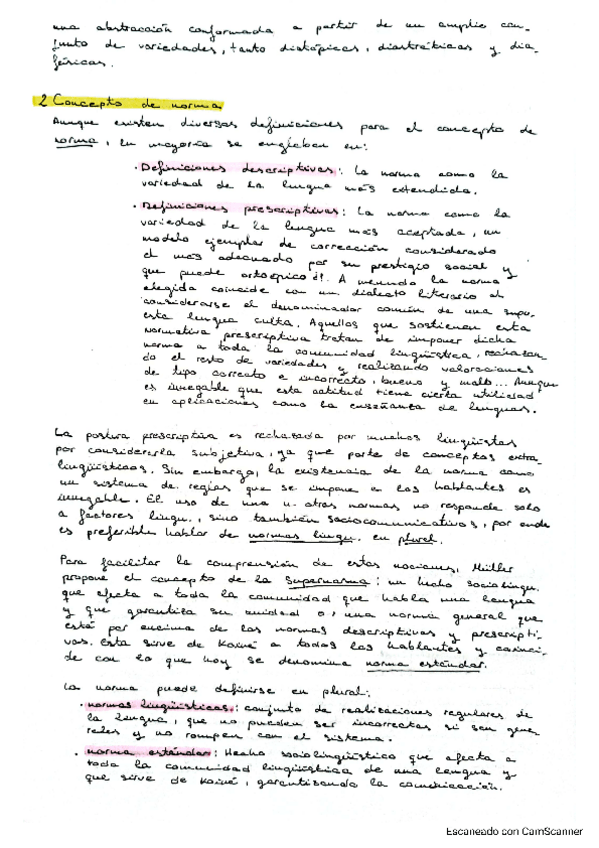 una abstracción conformada a partir de un amplio con-
junto de variedades, tanto diatópicas, diastráticas y dia-
fásicas.
2 Concepto de norma
Aunque existen diversas definiciones para el concepto de
norma, la mayoría se engloban en:
· Definiciones descriptivas: la norma como la
variedad de la lengua más extendida.
· Definiciones prescriptivas: la norma como la
variedad de la lengua más aceptada, un
modelo ejemplar de corrección considerado
el más adecuado por su prestigio social y
que puede A menudo la norma
elegida coincide con un dialecto literario al
considerarse el denominador común de una supu-
esta lengua culta. Aquellos que sostienen esta
normativa prescriptiva tratan de imponer dicha
norma a toda la comunidad lingüística, rechazan-
do el resto de variedades y realizando valoraciones
de tipo correcto e incorrecto, bueno y malo... Aunque
es innegable que esta actitud tiene cierta utilidad
en aplicaciones como la enseñanza de lenguas.
La postura prescriptiva es rechazada por muchos lingüistas
por considerarla subjetiva, ya que parte de conceptos extra-
lingüísticos. Sin embargo, la existencia de la norma como
un sistema de reglas que se impone a los hablantes es
innegable. El uso de una u otras normas no responde solo
a factores lingu., sino también sociocomunicativos, por ende
es preferible hablar de normas lingu. en plural.
Para facilitar la comprensión de estas nociones, Müller
propone el concepto de la supernorma: un hecho sociolingu.
que afecta a toda la comunidad que habla una lengua
y que garantiza su unidad o, una norma general que
está por encima de las normas descriptivas y prescripti-
vas. Esta sirve de koiné a todos los hablantes y coinci-
de con lo que hoy se denomina norma estándar.
La norma puede definirse en plural:
· normas lingüísticas: conjunto de realizaciones regulares de
la lengua, que no pueden ser incorrectas si son gene-
rales y no rompen con el sistema.
· norma estándar: Hecho sociolingüístico que afecta a
toda la comunidad lingüística de una lengua y
que sirve de koiné, garantizando la comunicación.
Escaneado con CamScanner